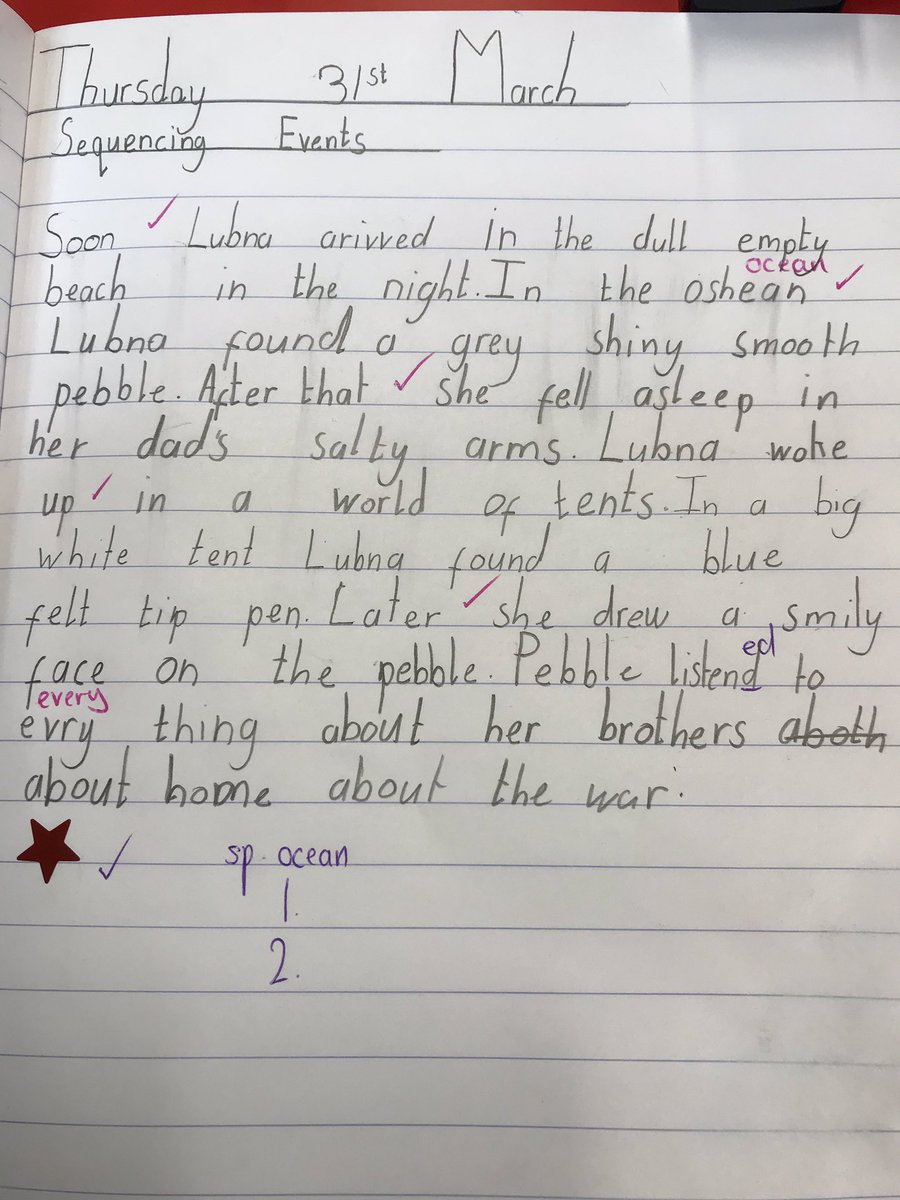 Thursday 31st March
Sequencing Events
Soon ✓ Lubna arivved in the dull empty
ocean
beach in the night. In the oshean ✓
Lubna found a grey shiny smooth
pebble. After that ✓ she fell asleep in
her dad's salty arms. Lubna woke
up ✓ in a world of tents. In a big
white tent Lubna found a blue
felt tip pen. Later ✓ she drew a smily
ed
face on the pebble. Pebble listend to
every
evry thing about her brothers aboth
about home about the war.
✓ sp. ocean
1.
2.